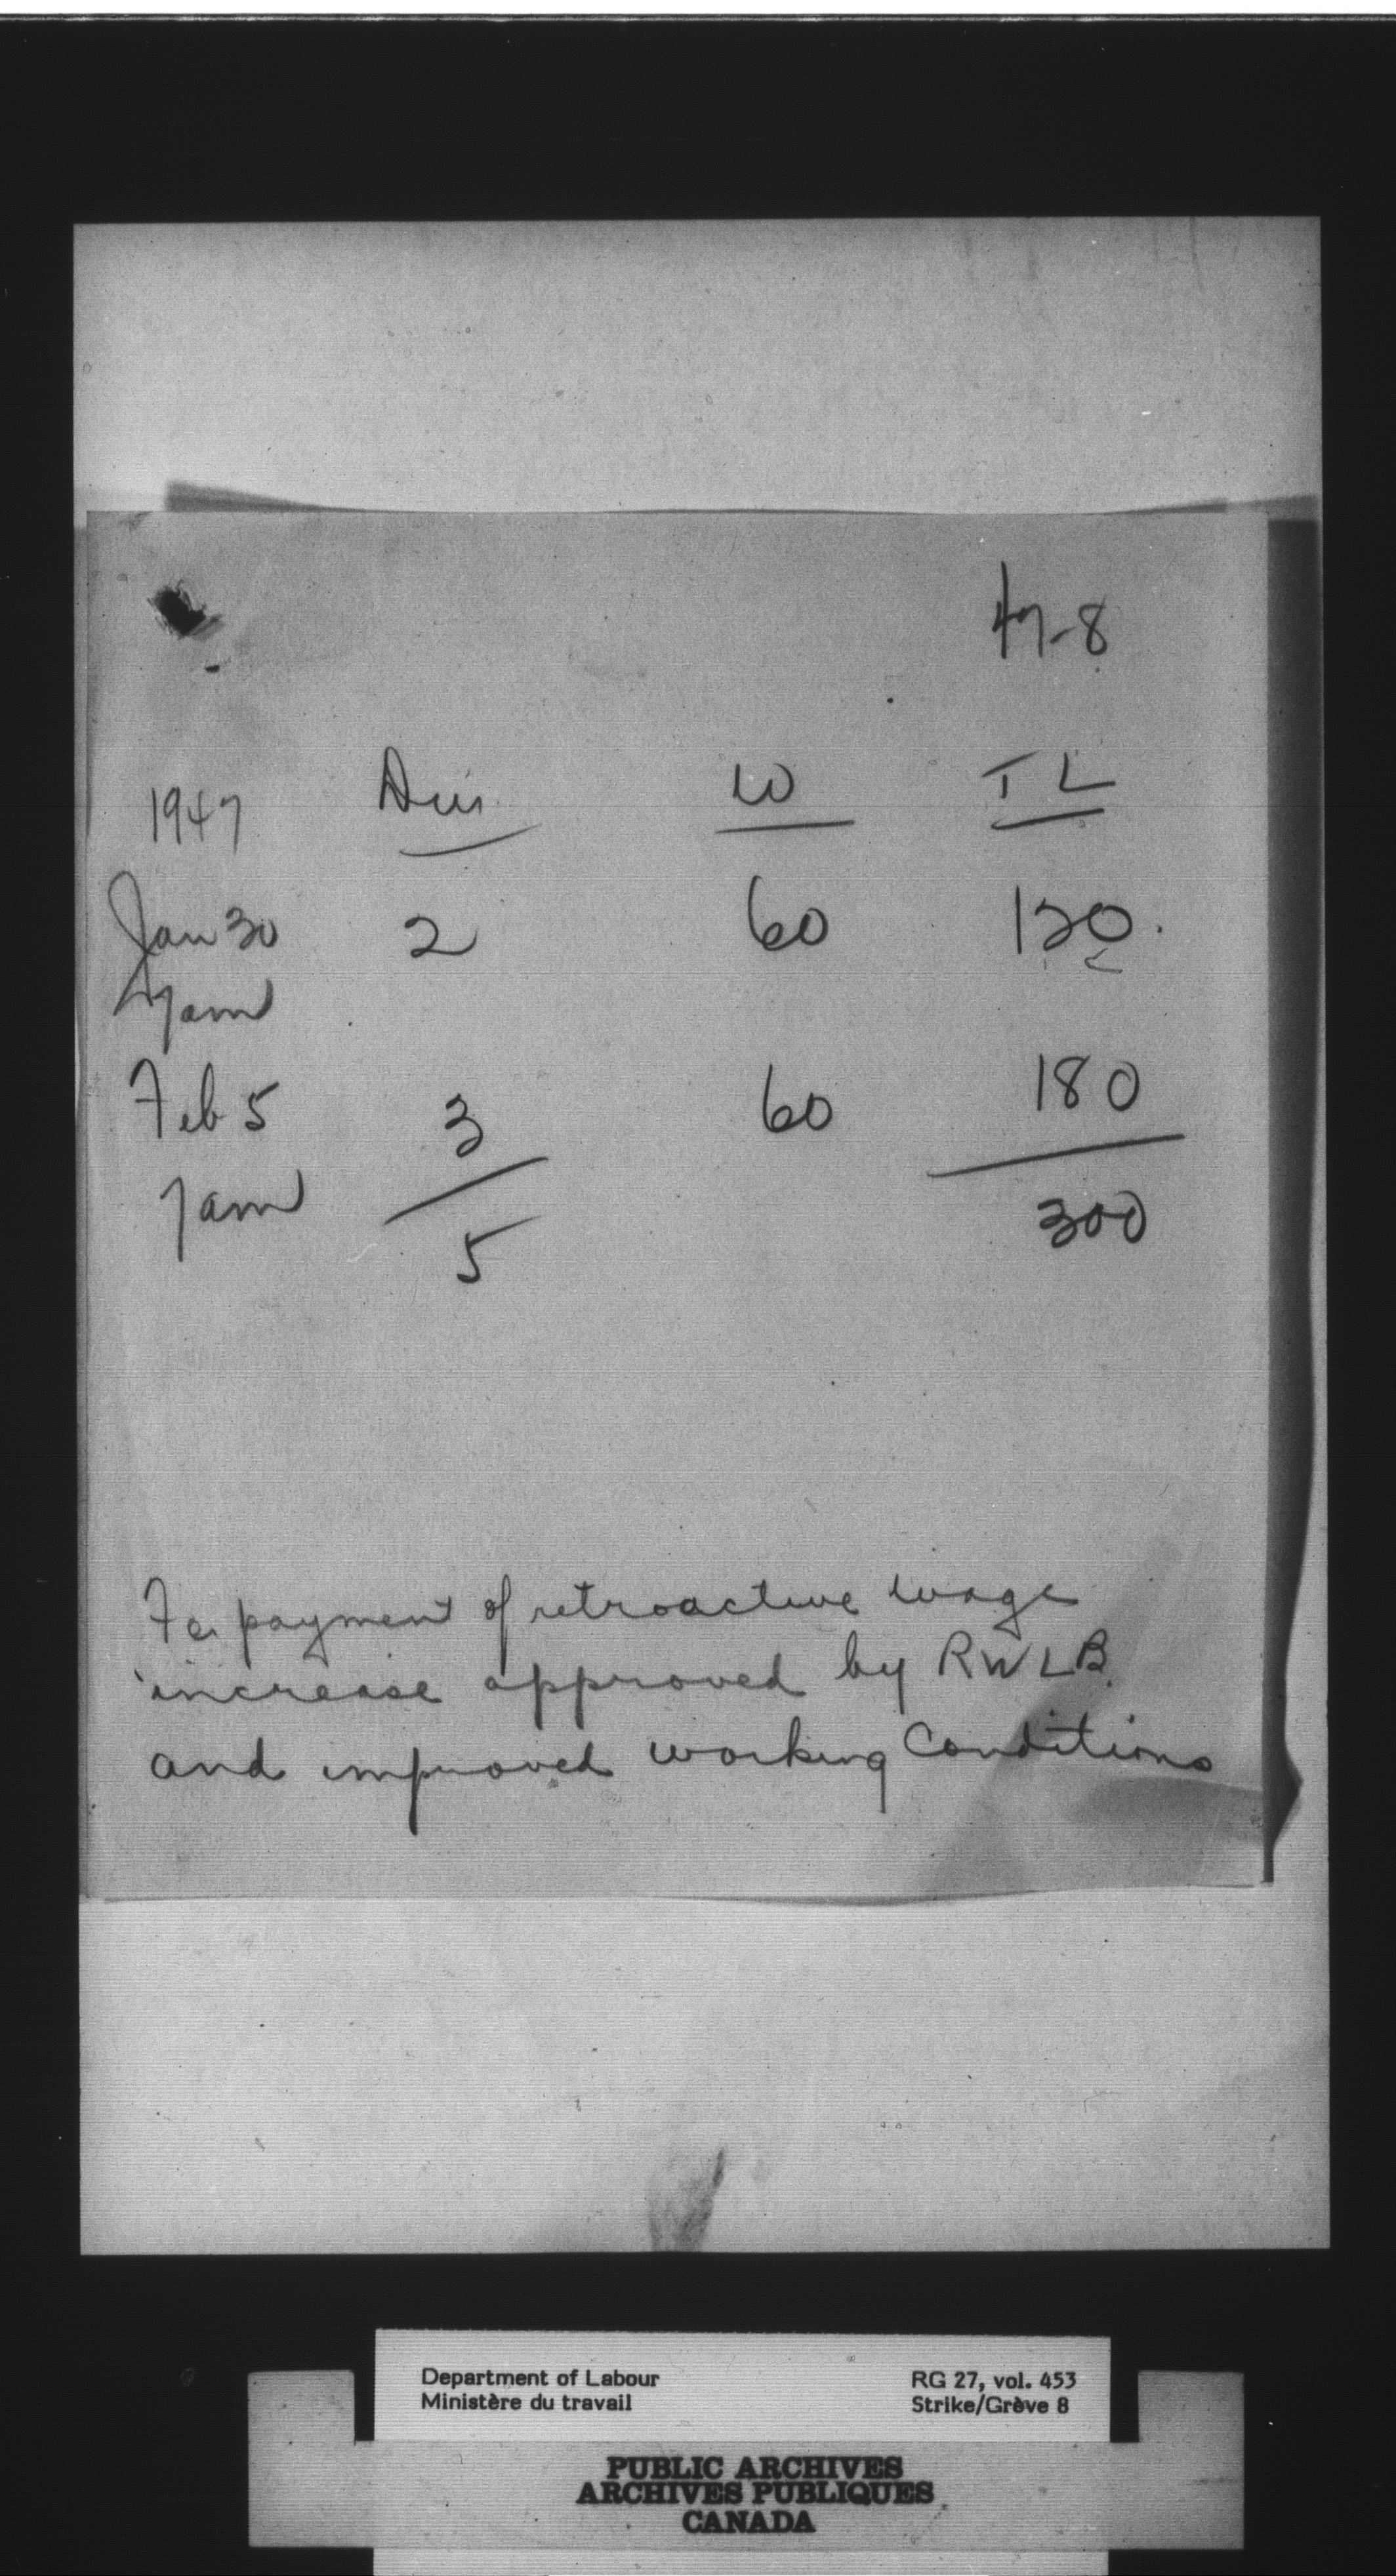 47-8
1947 Dur. W TL
Jan 30 2 60 120.
7am
Feb 5 3 60 180
7am 5 300
For payment of retroactive wage
increase approved by RWLB.
and improved working conditions
Department of Labour RG 27, vol. 453
Ministère du travail Strike/Grève 8
PUBLIC ARCHIVES
ARCHIVES PUBLIQUES
CANADA